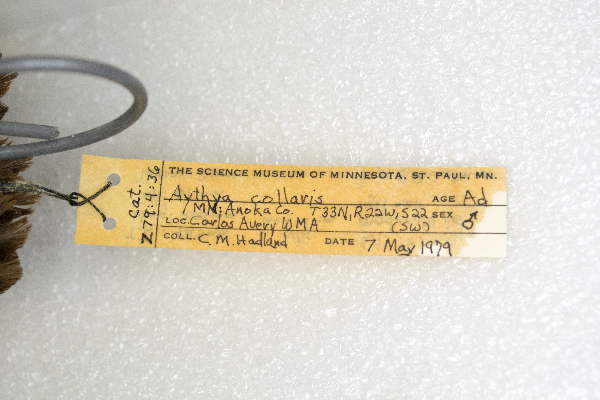 Cat.
Z79:4:36
THE SCIENCE MUSEUM OF MINNESOTA, ST. PAUL, MN.
Aythya collaris AGE Ad
MN; Anoka Co. T33N, R22W, S22 SEX ♂
LOC. Carlos Avery WMA (SW)
COLL. C. M. Hadland DATE 7 May 1979